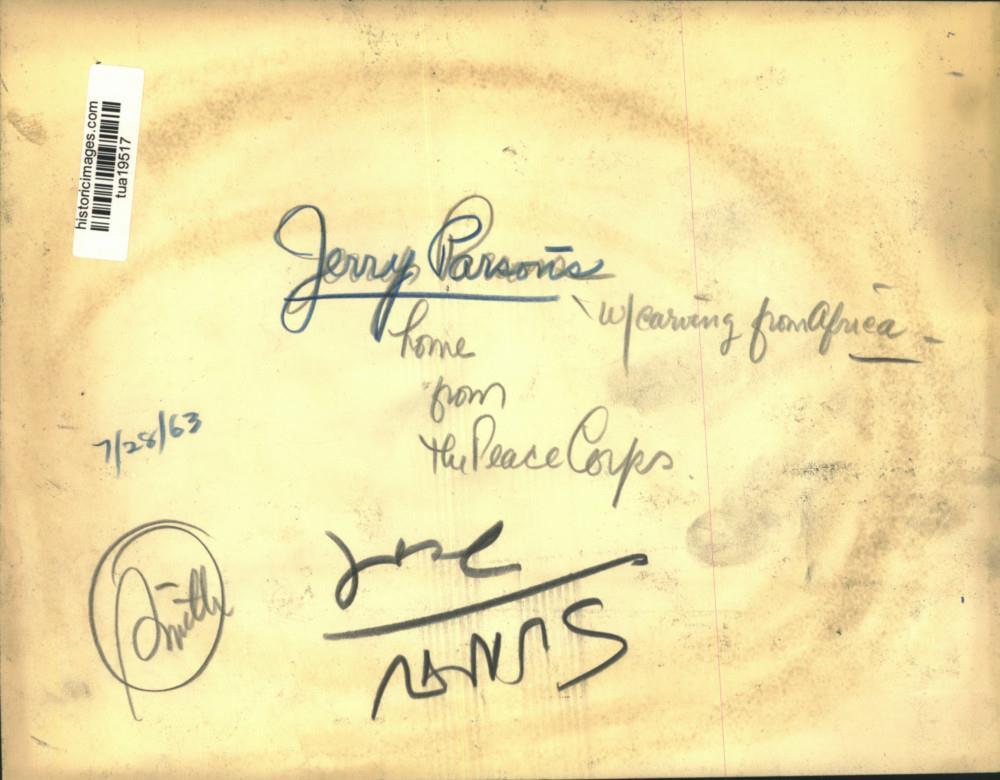 historicimages.com
tua19517
Jerry Parsons
w/carving from Africa -
home
from
the Peace Corps
7/28/63
Smith